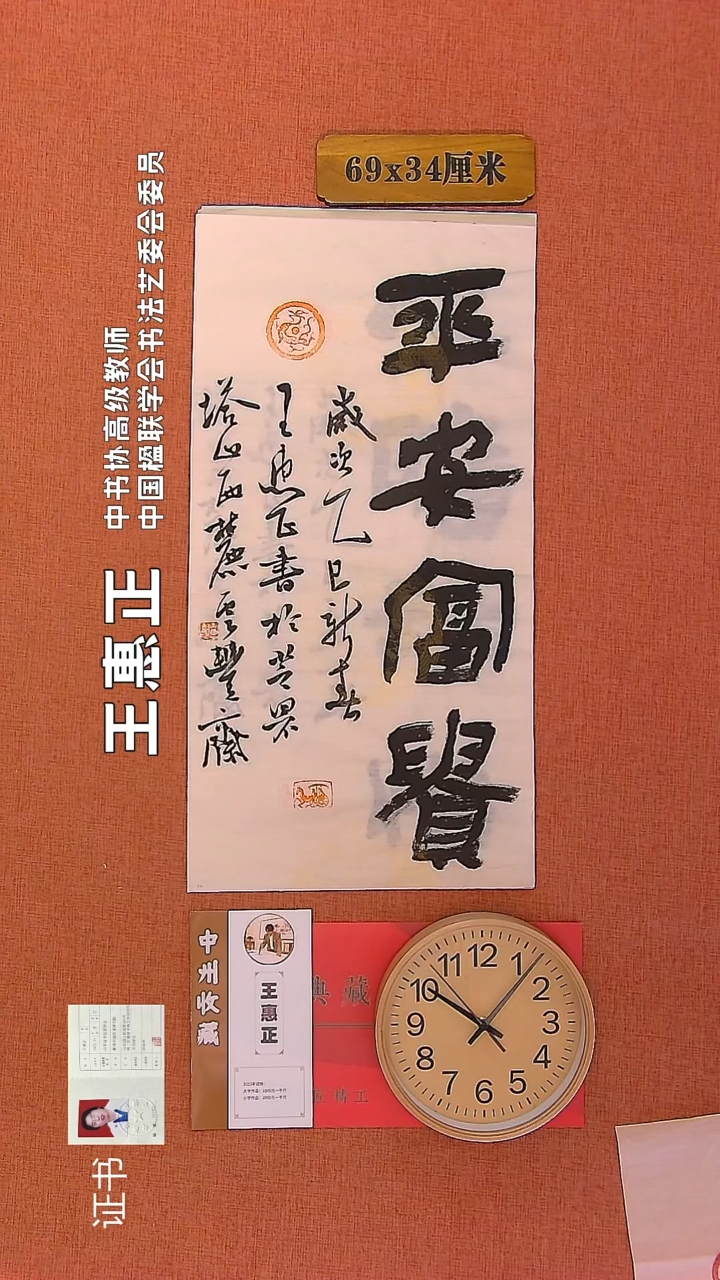 69x34厘米
平安富貴
歲次乙巳新春
王惠正書於芝罘
塔山西麓雲豐齋
王惠正
中书协高级教师
中国楹联学会书法艺委会委员
证书
中州收藏
王惠正
典藏
精工
12
1
2
3
4
5
6
7
8
9
10
11